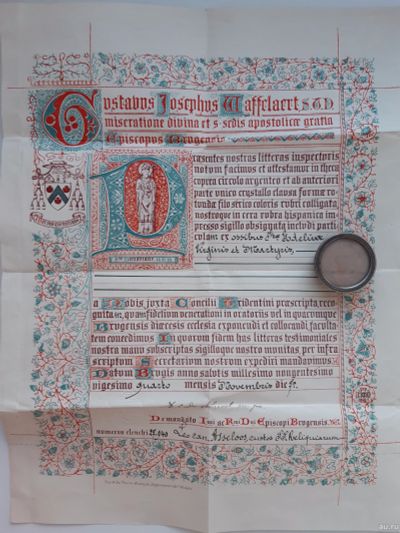 Gustavus Josephus Waffelaert, S.T.D.
miseratione divina et s. sedis apostolicæ gratia
Episcopus Brugensis
Præsentes nostras litteras inspecturis
notum facimus et attestamur in theca
cuprea circolo argenteo et ab anteriori
parte unico crystallo clausa forma ro-
tunda filo serico coloris rubri colligata,
nostroque in cera rubra hispanica im-
presso sigillo obsignata includi parti-
culam ex ossibus Stæ Adelinæ
Virginis et Martyris,
a Nobis juxta Concilii Tridentini præscripta, reco-
gnitam, quam fidelium venerationi in oratoriis vel in quacumque
Brugensis diœcesis ecclesia exponendi et collocandi, faculta-
tem concedimus In quorum fidem has litteras testimoniales
nostra manu subscriptas sigilloque nostro munitas per infra
scriptum Secretarium nostrum expediri mandavimus
Datum Brugis anno salutis millesimo nongentesimo
vigesimo quarto mensis Novembris die
De mandato Illmi ac Rmi Dni Episcopi Brugensis,
numerus elenchi custos SS. Reliquiarum
au.ru